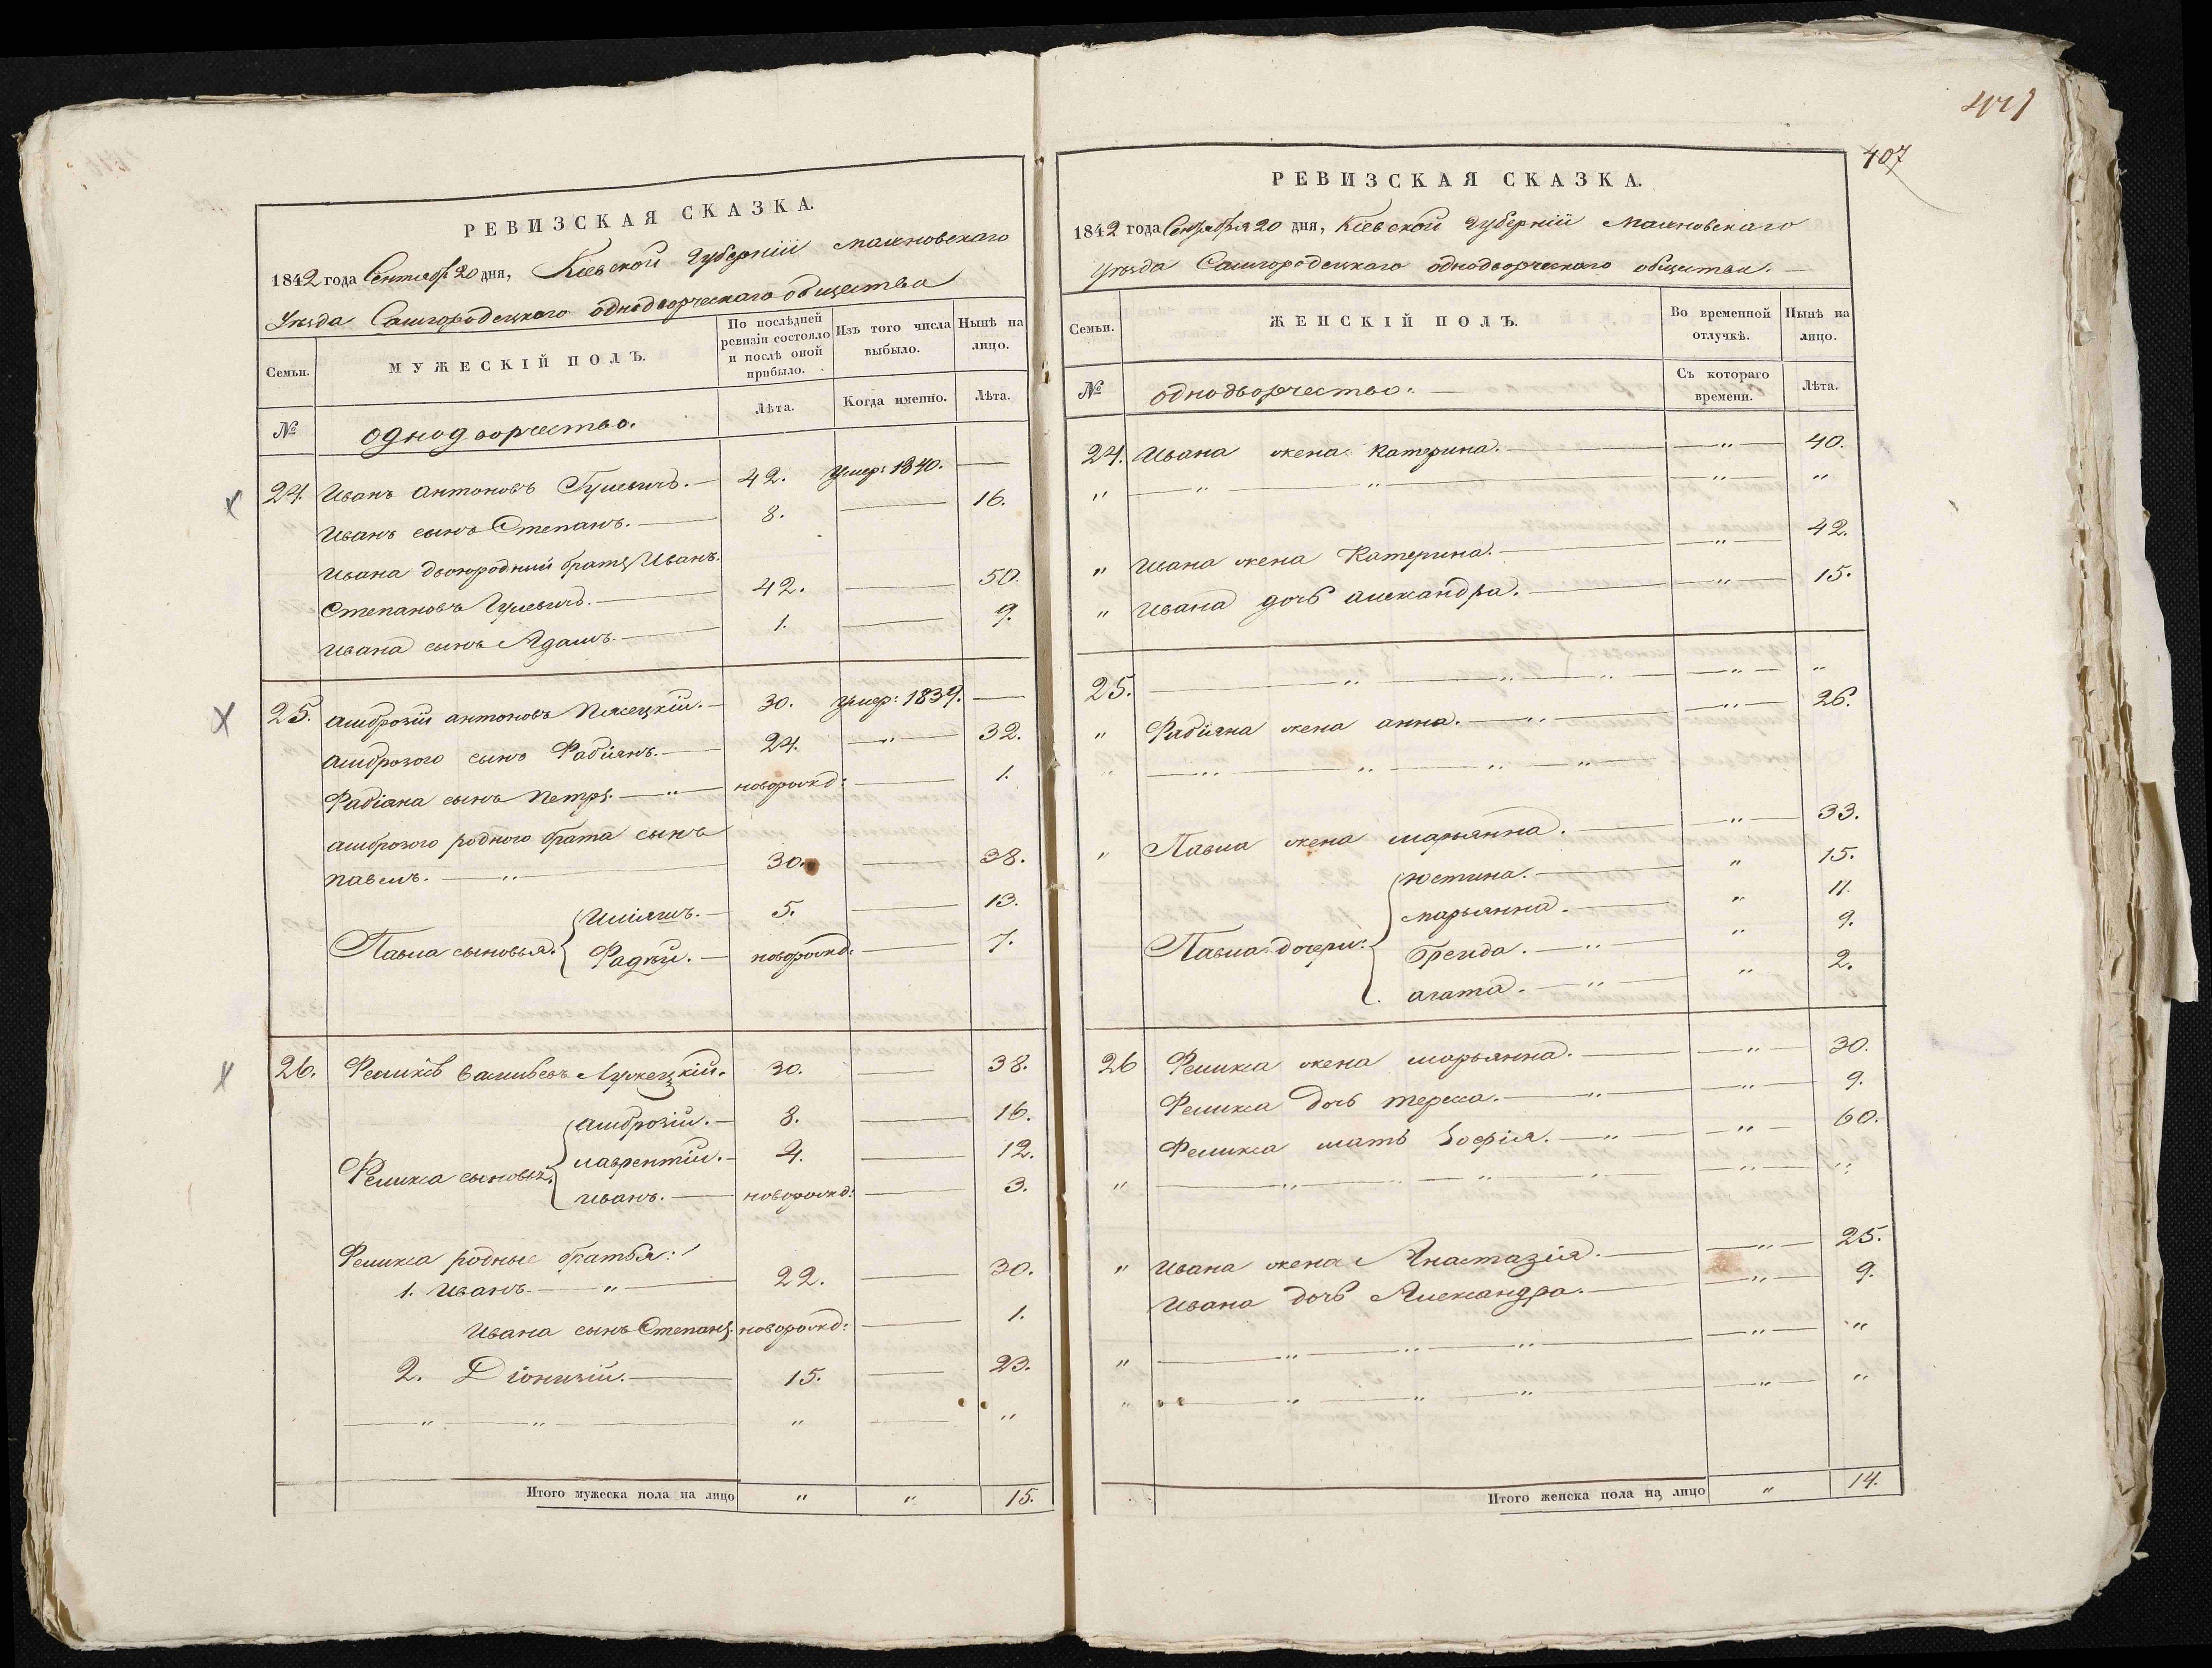 РЕВИЗСКАЯ СКАЗКА.
1842 года Сентябр. 20 дня, Кіевской Губерніи Махновскаго
Уѣзда Самгородецкаго однодворческаго общества
Семьи.
МУЖЕСКІЙ ПОЛЪ.
По послѣдней ревизіи состояло и послѣ оной прибыло.
Изъ того числа выбыло.
Нынѣ на лицо.
№
однодворчество.
Лѣта.
Когда именно.
Лѣта.
24. Иванъ Антоновъ Гулевичъ. — 42. умер: 1840. —
Иванъ сынъ Степанъ. — 8. — 16.
Ивана двоюродный братъ Иванъ
Степановъ Гулевичъ. — 42. — 50.
Ивана сынъ Адамъ. — 1. — 9.
25. Амброзій Антоновъ Пясецкій. — 30. умер: 1839. —
Амброзого сынъ Фабіянъ. — 24. — " — 32.
Фабіана сынъ Петръ. — " — новорожд: — 1.
Амброзого родного брата сынъ
Павелъ. — " — 30. — 38.
Павла сыновья. { Иліяшъ. — 5. — 13.
Фадѣй. — новорожд: — 7.
26. Феликсъ Васильевъ Лужецкій. 30. — 38.
Феликса сыновья. { Амброзій. — 8. — 16.
Лаврентій. — 4. — 12.
Иванъ. — новорожд: — 3.
Феликса родные братья:
1. Иванъ. — " — 22. — 30.
Ивана сынъ Степанъ. новорожд: — 1.
2. Діонизій. — 15. — 23.
— " — " — " — "
Итого мужеска пола на лицо " " 15.
411
407
РЕВИЗСКАЯ СКАЗКА.
1842 года Сентября 20 дня, Кіевской Губерніи Махновскаго
Уѣзда Самгородецкаго однодворческаго общества. —
Семьи.
ЖЕНСКІЙ ПОЛЪ.
Во временной отлучкѣ.
Нынѣ на лицо.
№
однодворчество. —
Съ котораго времени.
Лѣта.
24. Ивана жена Катерина. — " — 40.
" — " — " — " — "
" Ивана жена Катерина. — " — 42.
" Ивана дочь Александра. — " — 15.
25. — " — " — " — " — "
" Фабіяна жена Анна. — " — " — 26.
" — " — " — " — " —
" Павла жена Марьянна. — " — 33.
Павла дочери: { Юстина. — " 15.
Марьянна. — " 11.
— " — " 9.
Агата. — " — " 2.
26 Феликса жена Марьянна. — " — 30.
Феликса дочь Тереса. — " — " — 9.
Феликса мать Зофія. — " — " — 60.
" — " — " — " — " — "
" Ивана жена Анастазія. — " — 25.
Ивана дочь Александра. — " — 9.
" — " — " — " — " — "
" — " — " — " — " — "
Итого женска пола на лицо " 14.